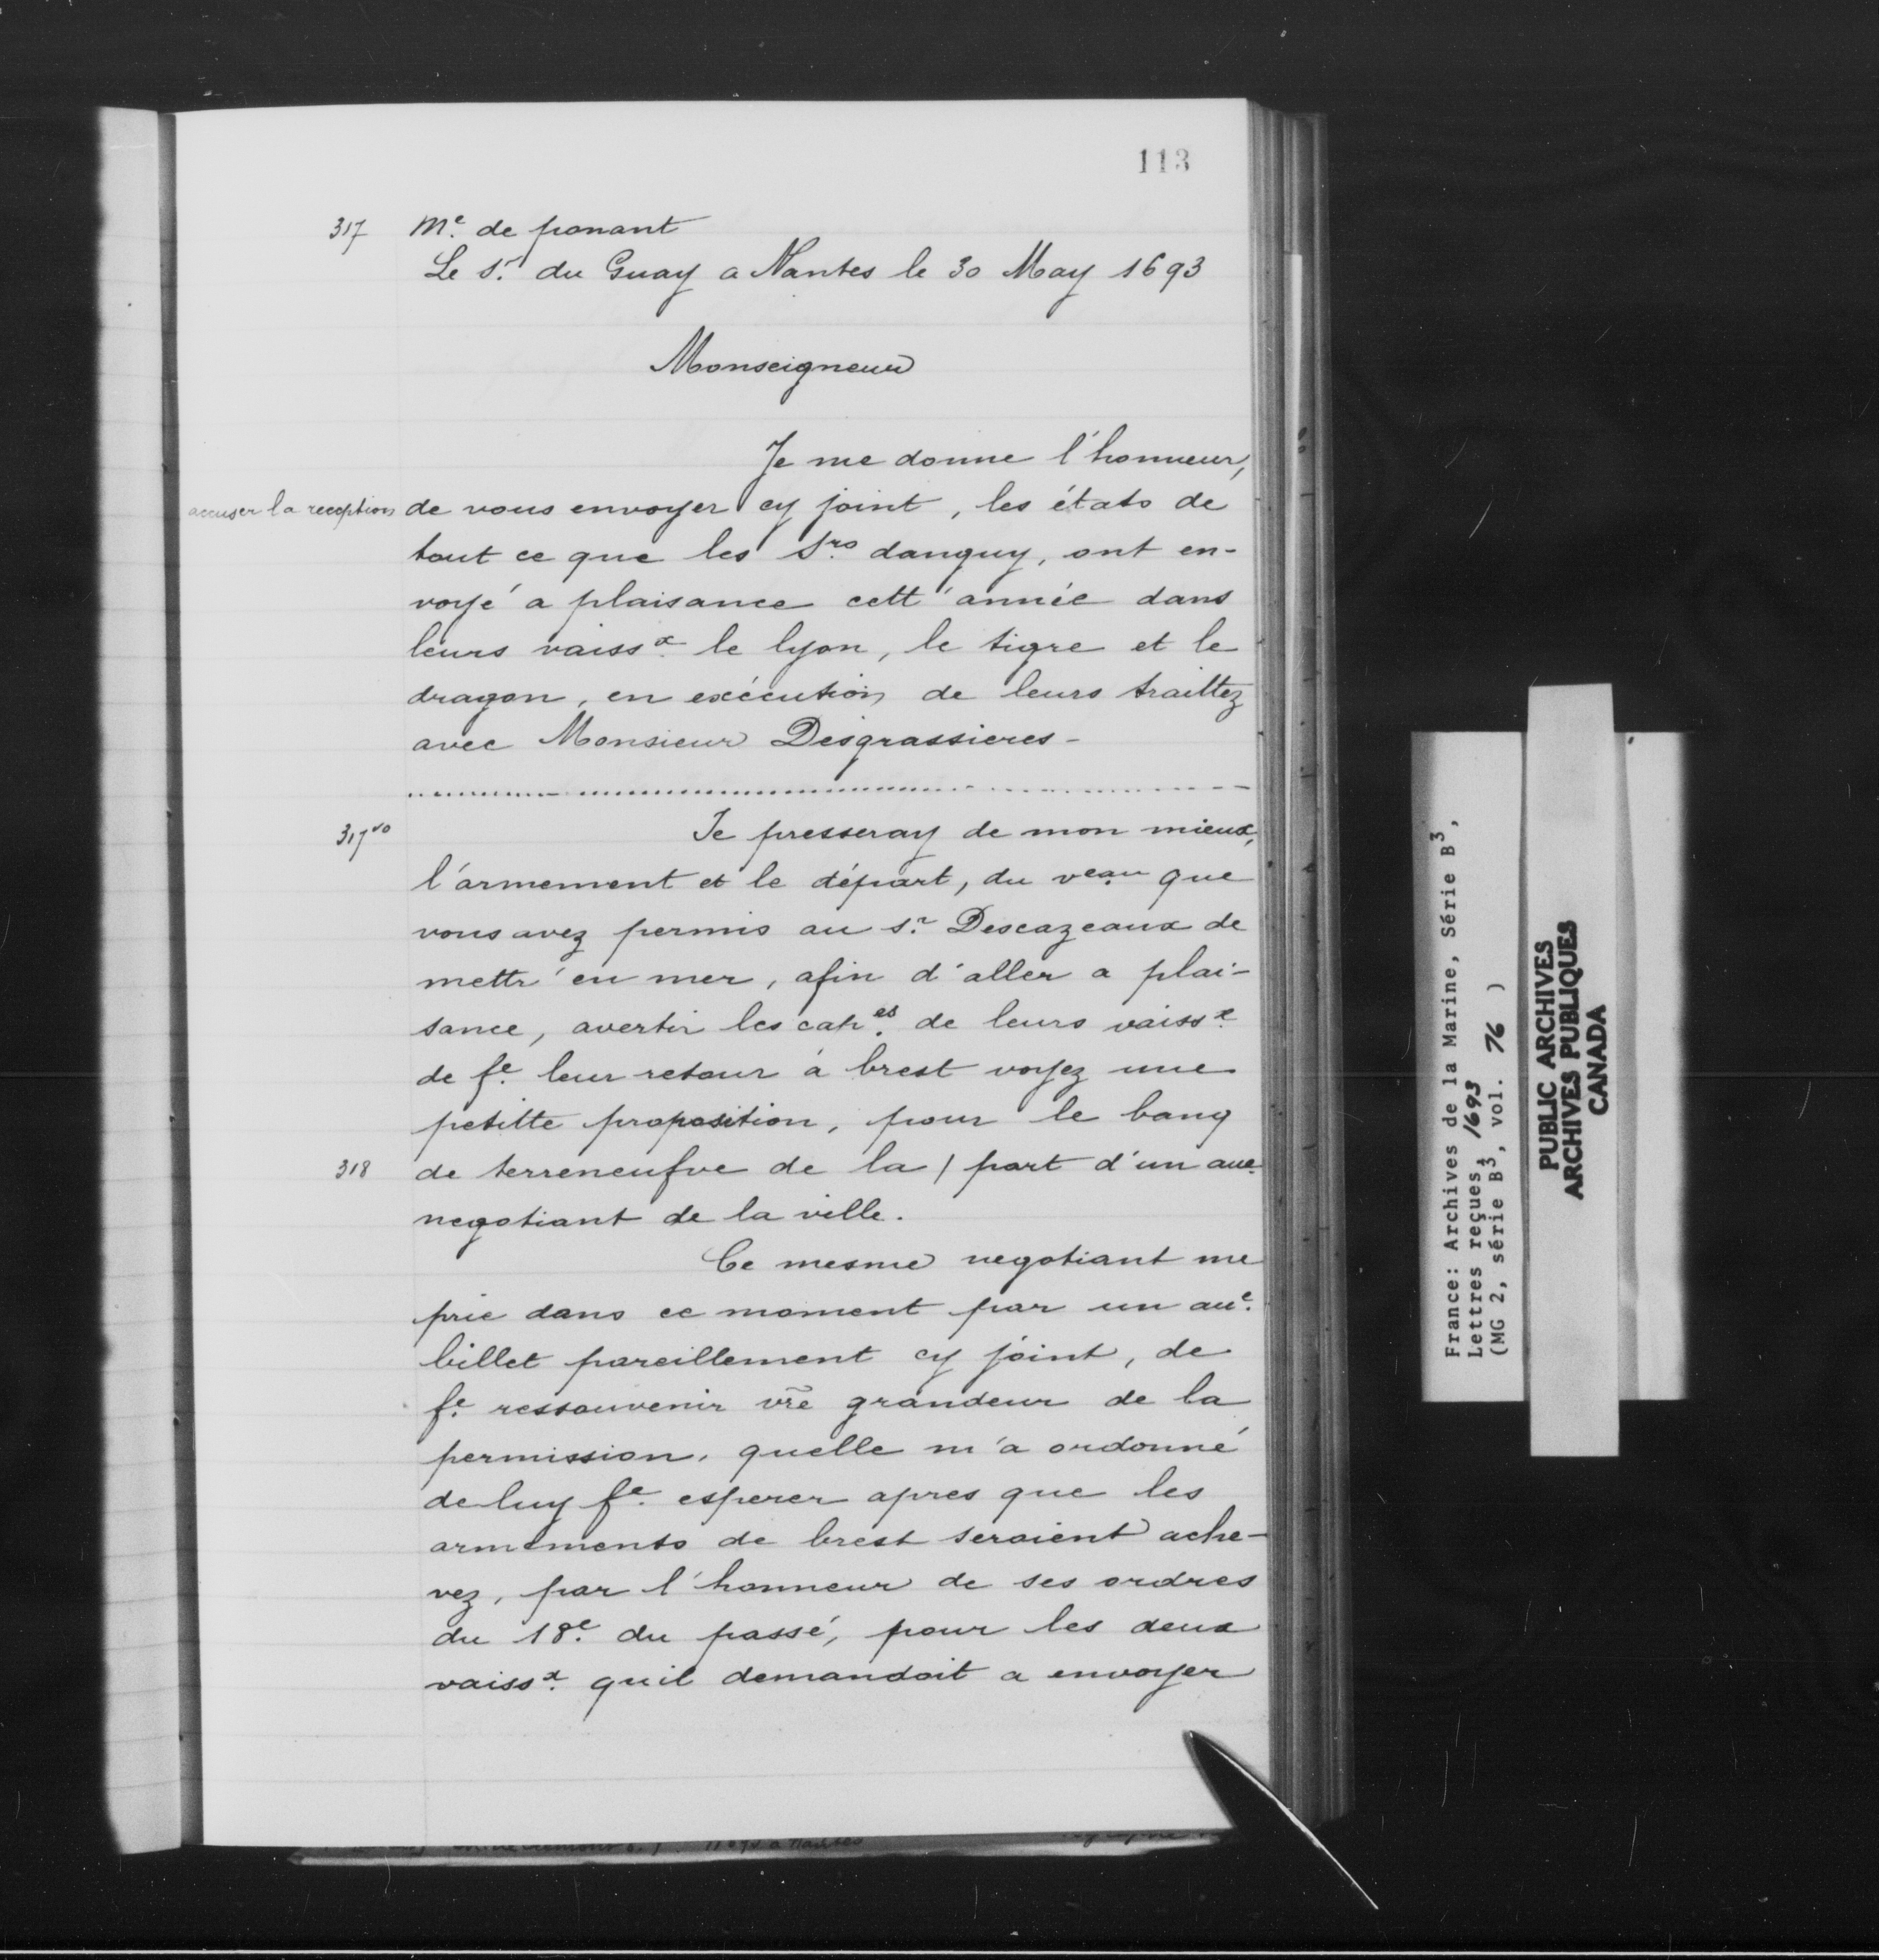 113
317 Me. de ponant
Le Sr. du Guay a Nantes le 30 May 1693
Monseigneur
Je me donne l'honneur,
accuser la reception de vous envoyer cy joint, les états de
tout ce que les Srs. danguy, ont en-
voyé a plaisance cett'année dans
leurs vaissx. le lyon, le tigre et le
dragon, en exécution de leurs traittez
avec Monsieur Desgrassieres -
317vo Je presseray de mon mieux,
l'armement et le départ, du veau. que
vous avez permis au Sr. Descazeaux de
mettr'en mer, afin d'aller a plai-
sance, avertir les capes. de leurs vaissx.
de fe. leur retour à brest voyez une
petitte proposition, pour le banq
318 de terreneufve de la / part d'un aue.
negotiant de la ville.
Ce mesme negotiant me
prie dans ce moment par un aue.
billet pareillement cy joint, de
fe. ressouvenir vr̃e grandeur de la
permission, quelle m'a ordonné
de luy fe. esperer apres que les
armements de brest seroient ache-
vez, par l'honneur de ses ordres
du 18e. du passé, pour les deux
vaissx. qu'il demandoit a envoyer
France: Archives de la Marine, Série B3,
Lettres reçues, 1693
(MG 2, série B3, vol. 76 )
PUBLIC ARCHIVES
ARCHIVES PUBLIQUES
CANADA